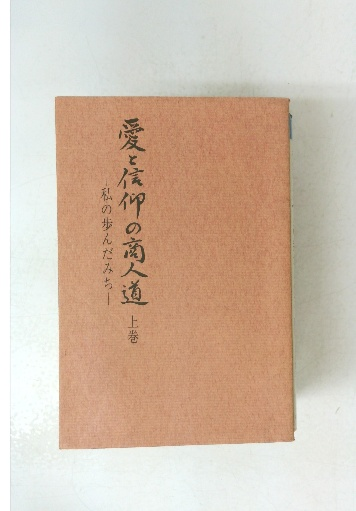 愛と信仰の商人道 上巻
―私の歩んだみち―